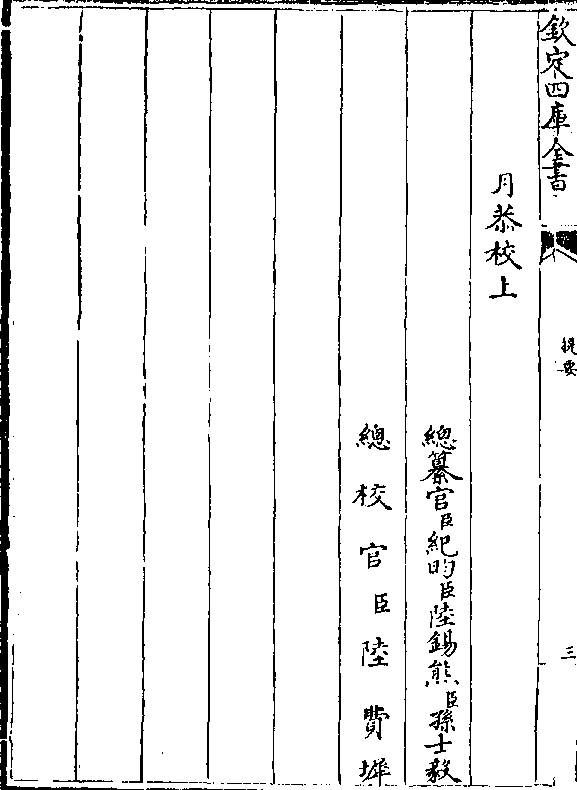 欽定四庫全書
提要
三
月恭校上
總纂官臣紀昀臣陸錫熊臣孫士毅
總校官臣陸費墀